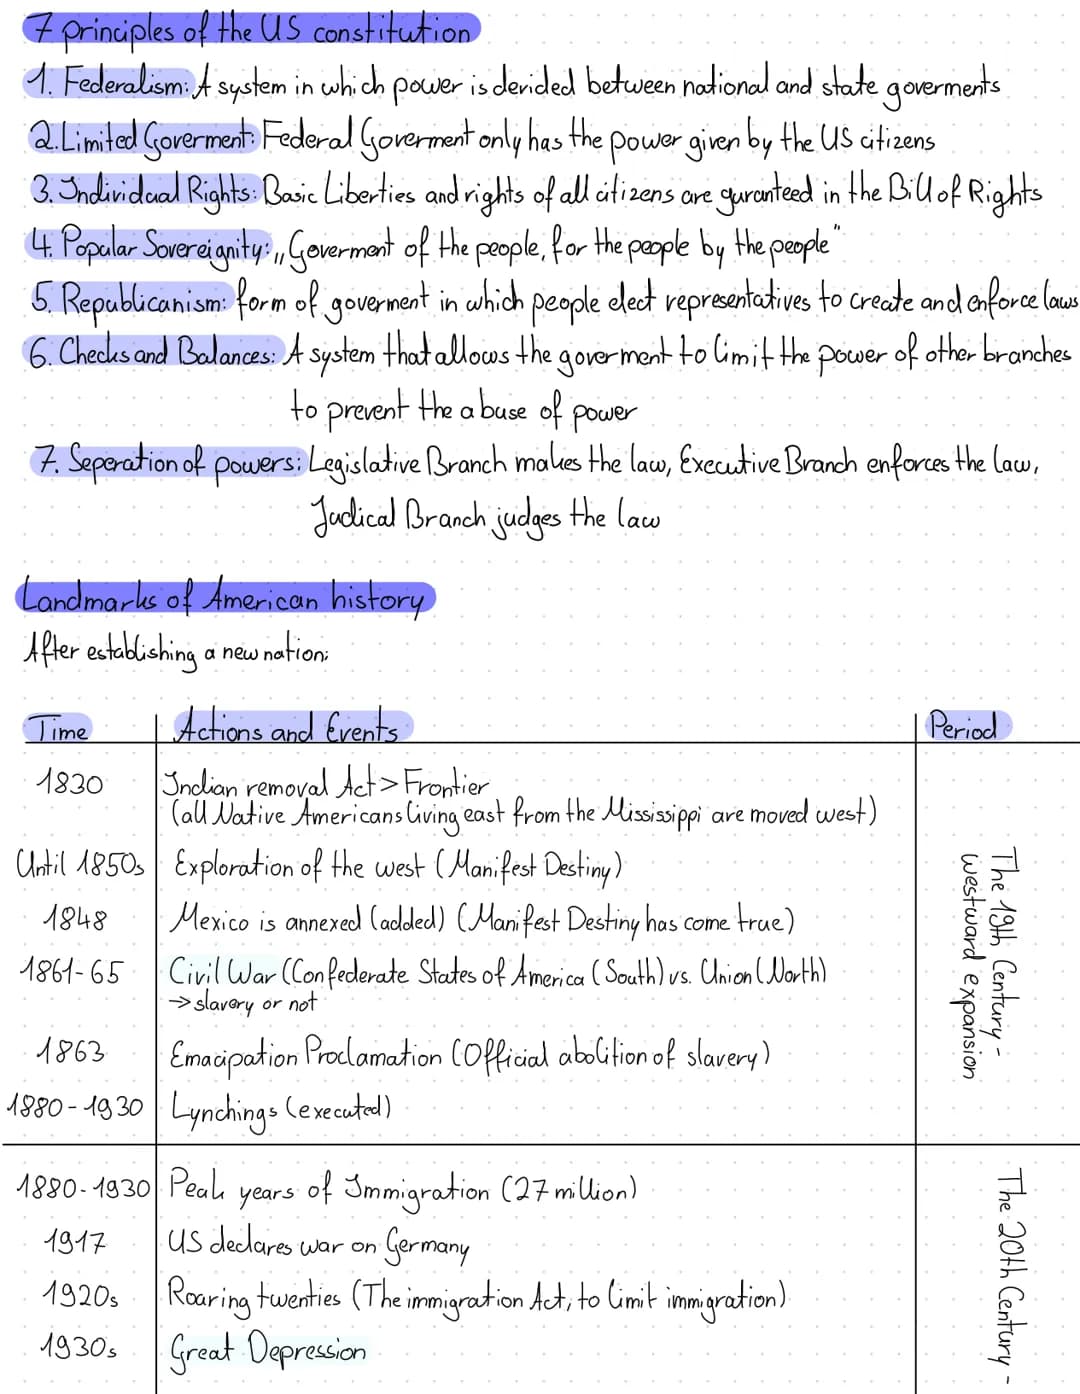 7 principles of the US constitution
1. Federalism: A system in which power is derided between national and state goverments
2. Limited Goverment: Federal Goverment only has the power given by the US citizens
3. Individual Rights: Basic Liberties and rights of all citizens are guranteed in the Bill of Rights
4. Popular Sovereignity: „Goverment of the people, for the people by the people"
5. Republicanism: form of goverment in which people elect representatives to create and enforce laws
6. Checks and Balances: A system that allows the goverment to limit the power of other branches
to prevent the abuse of power
7. Seperation of powers: Legislative Branch makes the law, Executive Branch enforces the law,
Judical Branch judges the law
Landmarks of American history
After establishing a new nation:
Time Actions and Events Period
1830 Indian removal Act > Frontier
(all Native Americans living east from the Mississippi are moved west)
Until 1850s Exploration of the west (Manifest Destiny)
1848 Mexico is annexed (added) (Manifest Destiny has come true)
1861-65 Civil War (Confederate States of America (South) vs. Union (North)
→ slavery or not
1863 Emacipation Proclamation (Official abolition of slavery)
1880-1930 Lynchings (executed)
The 19th Century -
westward expansion
1880-1930 Peak years of Immigration (27 million)
1917 US declares war on Germany
1920s Roaring twenties (The immigration Act, to limit immigration)
1930s Great Depression
The 20th Century -